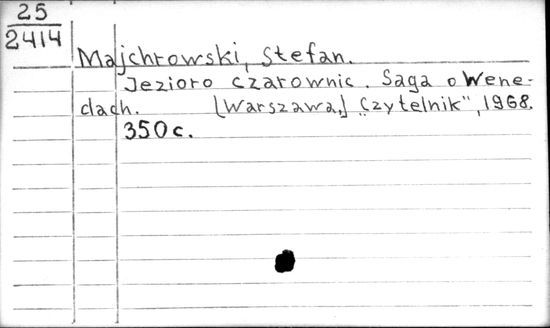 25
2414
Majchrowski, Stefan.
Jezioro czarownic. Saga o Wene-
dach. [Warszawa,] „Czytelnik", 1968.
350 c.